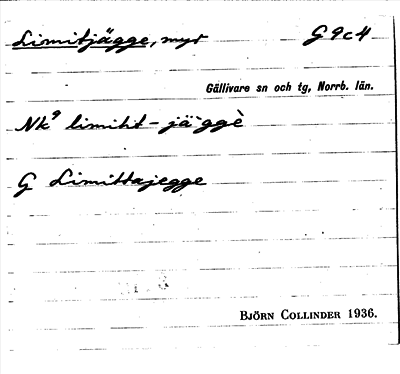 Limitjägge, myr G 9c4
Gällivare sn och tg, Norrb. län.
Nk⁹ limiht-jä`ggè
G Limittajegge
BJÖRN COLLINDER 1936.